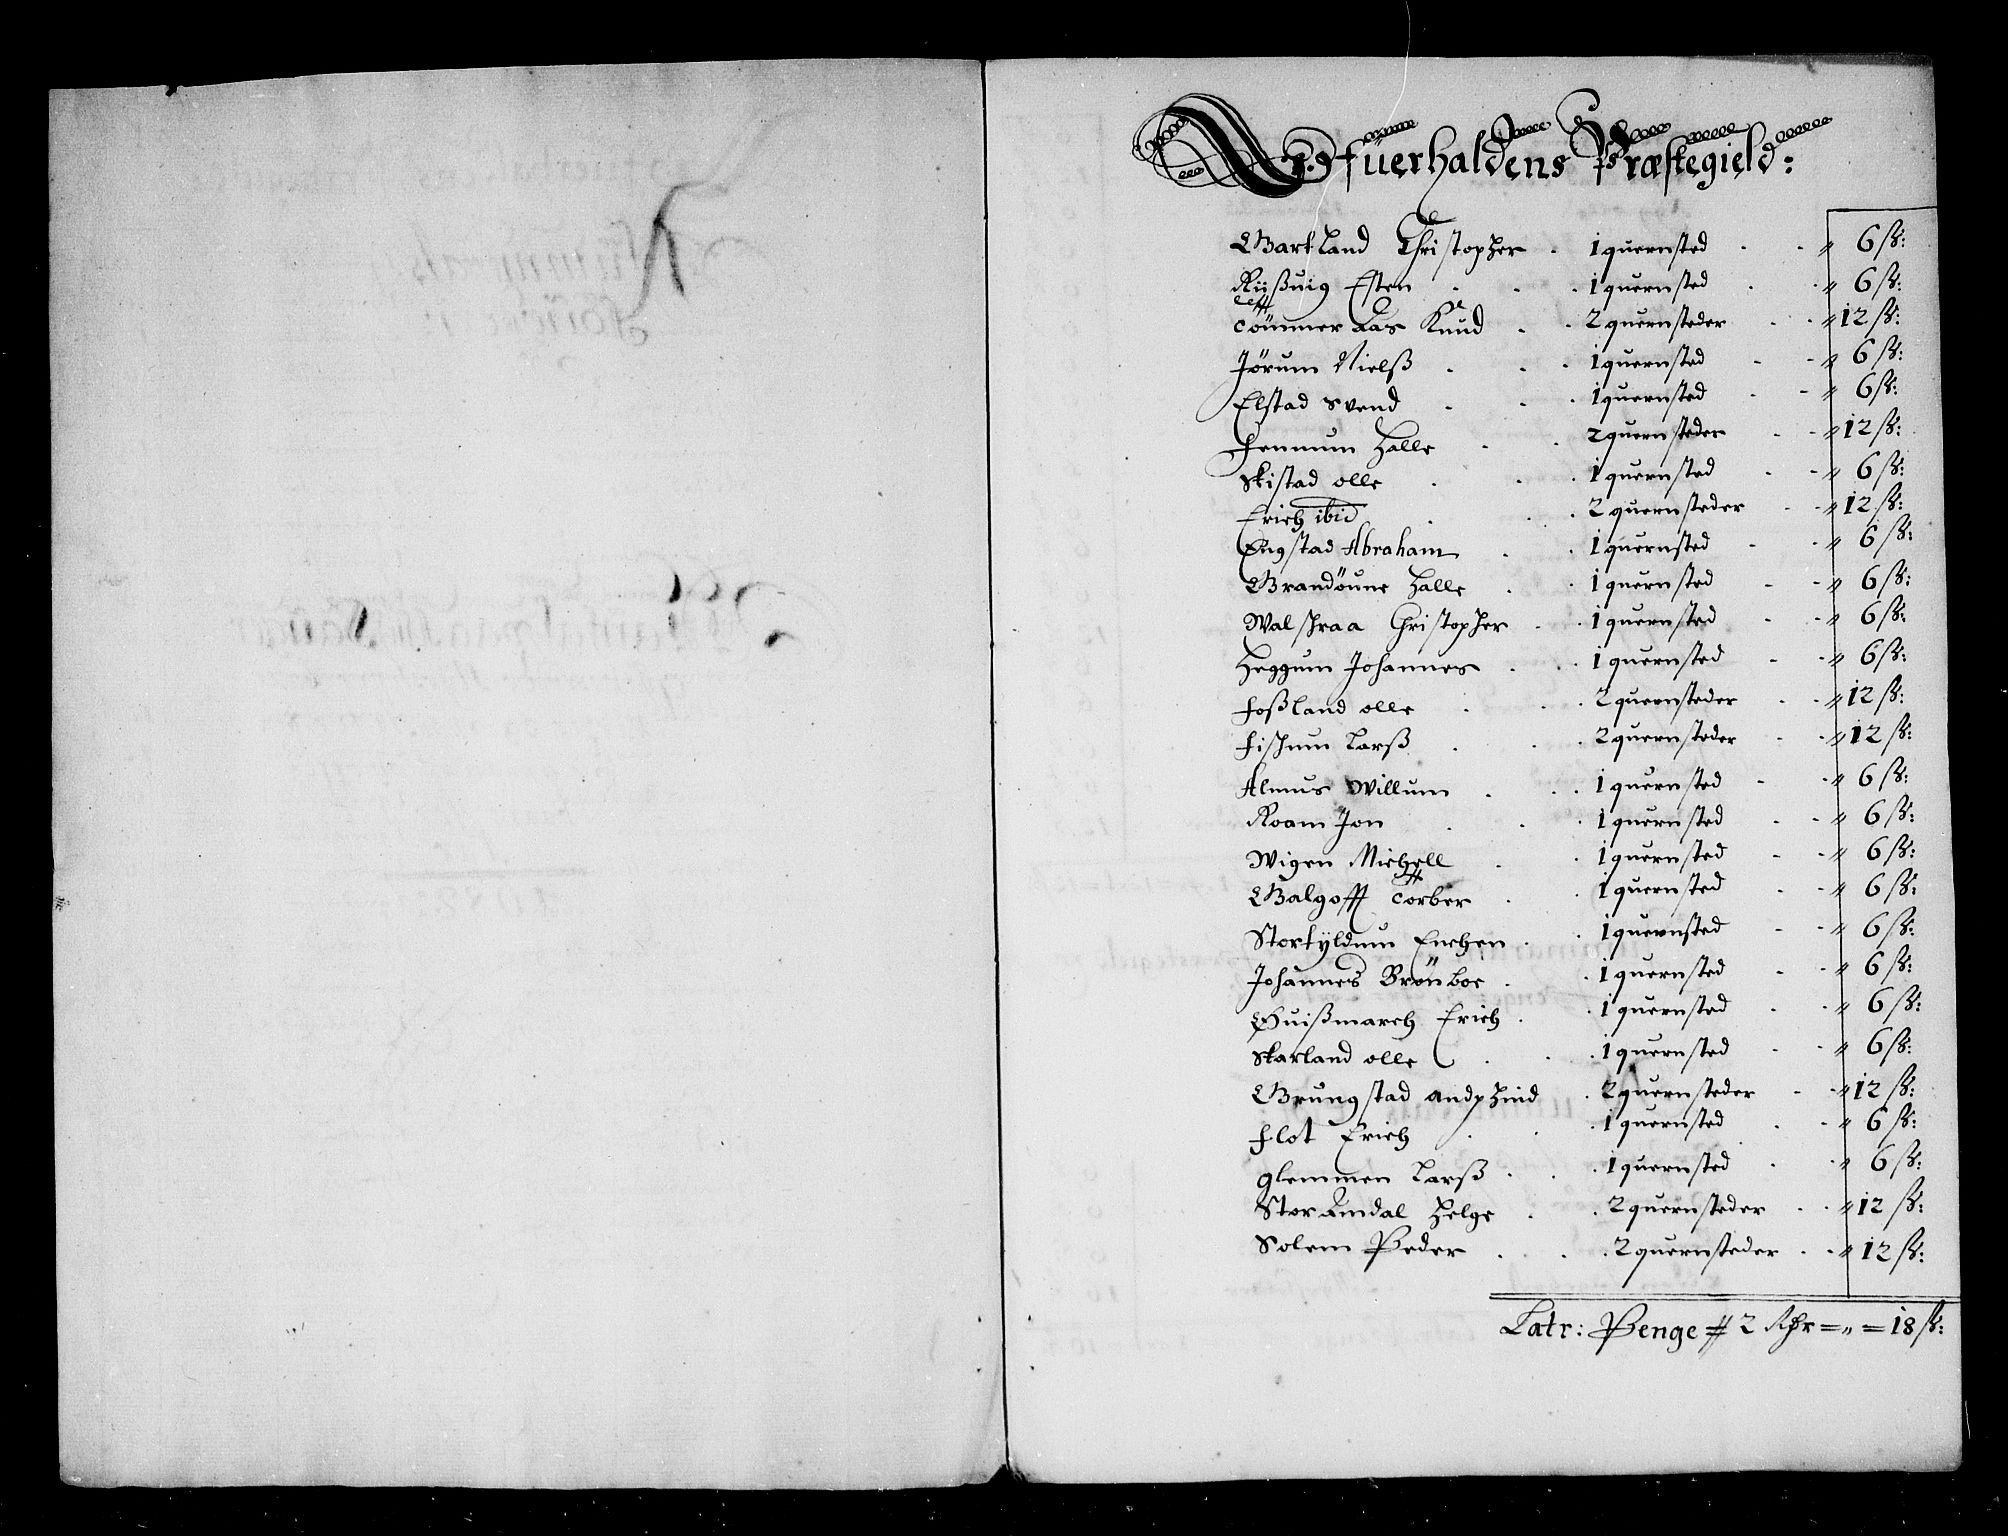 Offuerhaldens Præstegield:
Bartland Christopher . 1 quernsted . . " 6 ß:
Riißuig Esten . . . 1 quernsted . . " 6 ß:
Tømmeraas Knud . . 2 quernsteder . . " 12 ß:
Jørum Nielß . . . 1 quernsted . . " 6 ß:
Elstad Svend . . . 1 quernsted . . " 6 ß:
Hemnum Halle . . 2 quernsteder . . " 12 ß:
Skistad olle . . . 1 quernsted . . " 6 ß:
Erich ibid . . . 2 quernsteder . . " 12 ß:
Engstad Abraham . . 1 quernsted . . " 6 ß:
Brandøune Halle . . 1 quernsted . . " 6 ß:
Walskraa Christopher . . 1 quernsted . . " 6 ß:
Heggum Johannes . . 1 quernsted . . " 6 ß:
Foßland olle . . . 2 quernsteder . . " 12 ß:
Fiskum Larß . . . 2 quernsteder . . " 12 ß:
Almus Willum . . . 1 quernsted . . " 6 ß:
Roam Jon . . . 1 quernsted . . " 6 ß:
Wigen Michell . . 1 quernsted . . " 6 ß:
Galgofft Torber . . 1 quernsted . . " 6 ß:
Stortyldum Enchen . . 1 quernsted . . " 6 ß:
Johannes Brønboe . . 1 quernsted . . " 6 ß:
Guißmarch Erich . . 1 quernsted . . " 6 ß:
Skarland olle . . . 1 quernsted . . " 6 ß:
Grungstad andphind . 2 quernsteder . . " 12 ß:
Flot Erich . . . 1 quernsted . . " 6 ß:
Glemmen Larß . . . 1 quernsted . . " 6 ß:
Stor Amdal Helge . . 2 quernsteder . . " 12 ß:
Solem Peder . . . 2 quernsteder . . " 12 ß:
Latr: Penge # 2 Rdr = " = 18 ß: